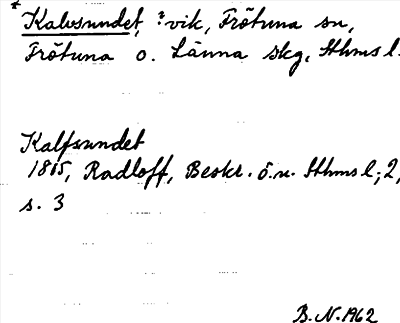 * Kalvsundet, ? vik, Frötuna sn,
Frötuna o. Länna skg, Sthms l.
Kalfsundet
1805, Radloff, Beskr. ö.n. Sthms l; 2,
s. 3
B.N. 1962